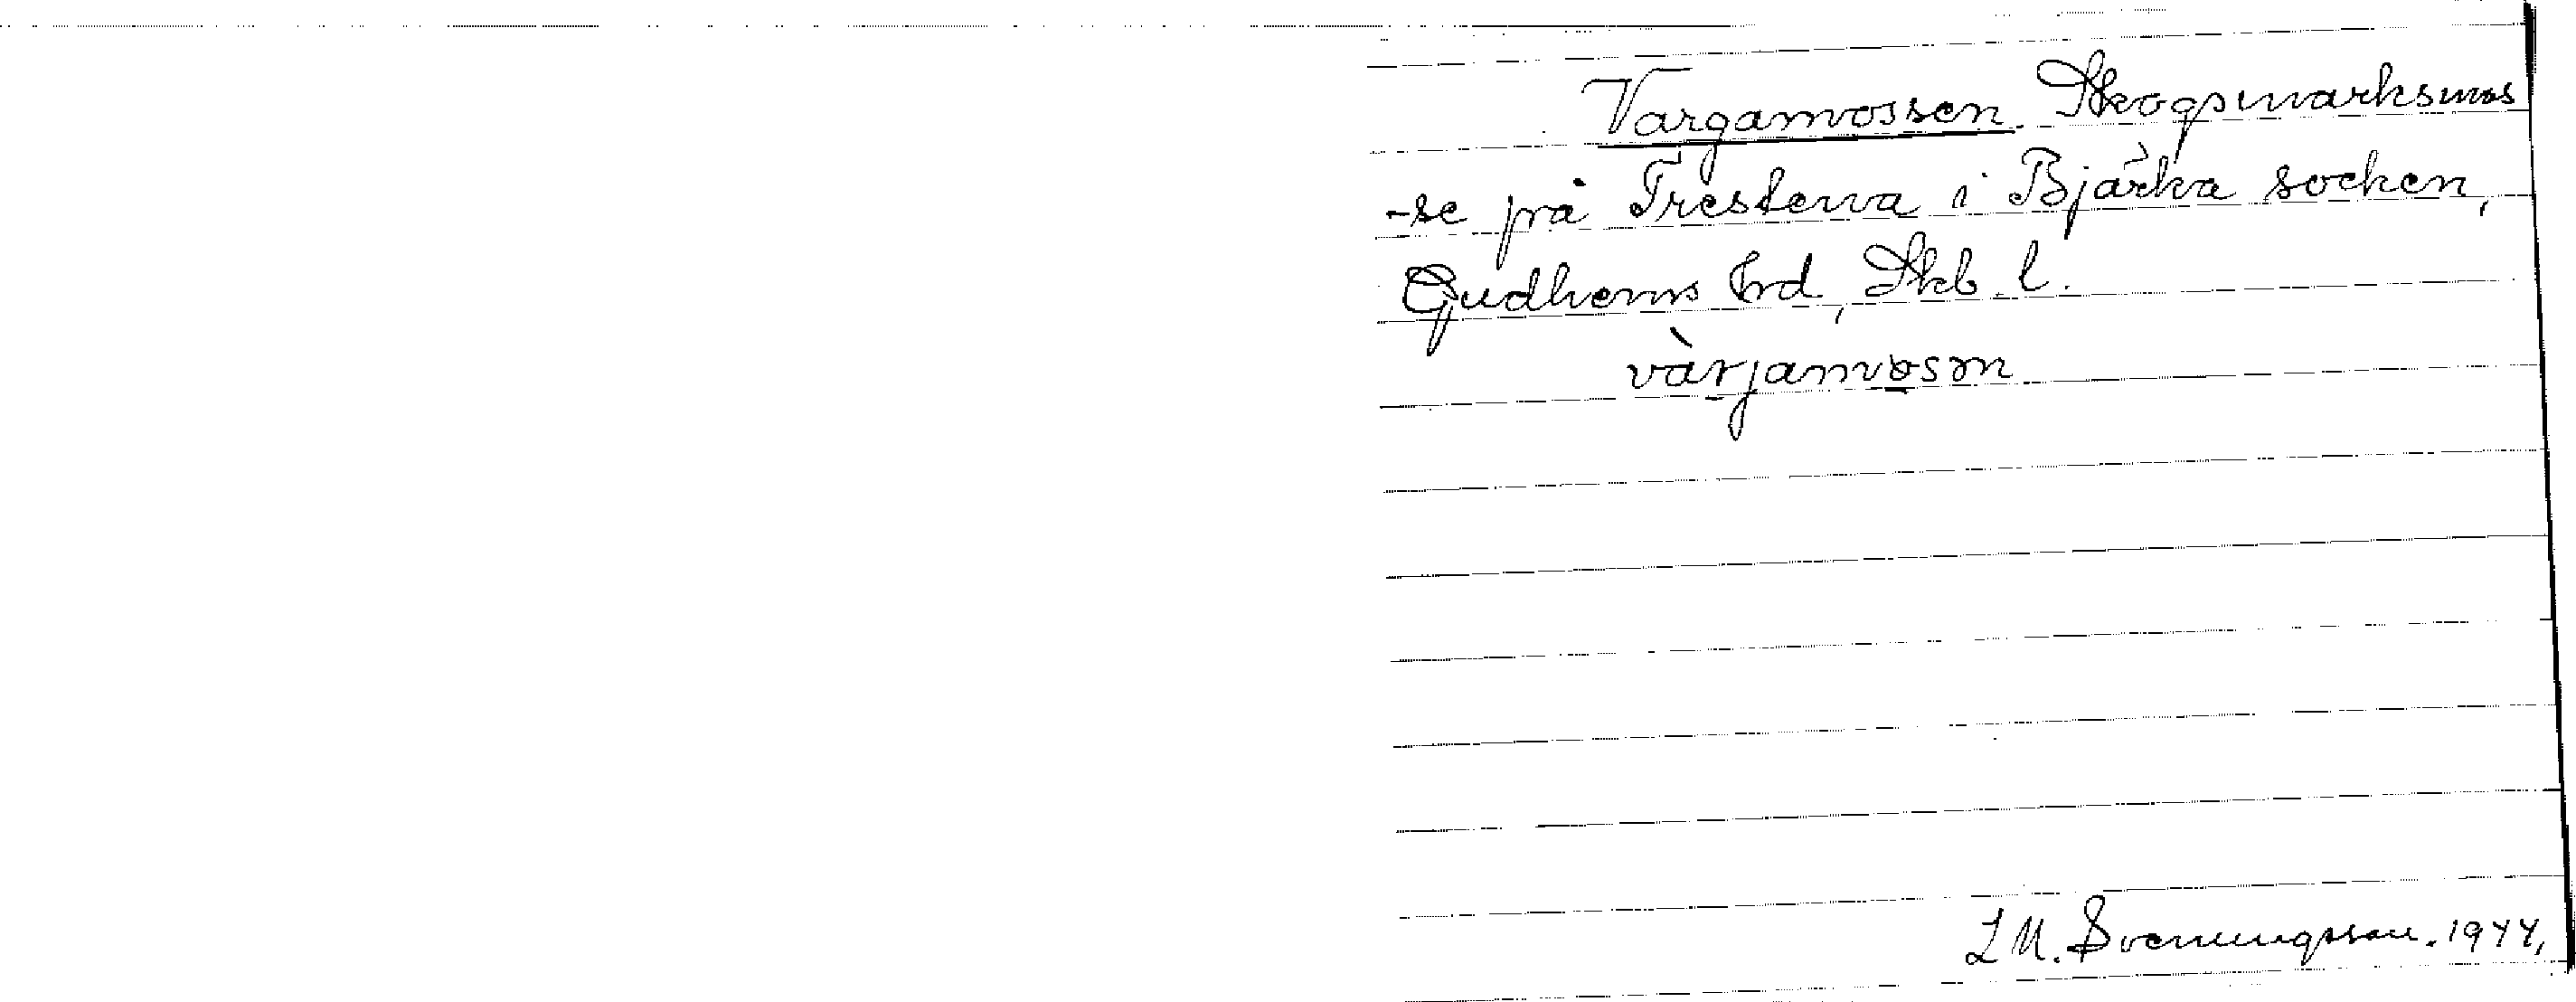 Vargamossen. Skogsmarksmos
-se på Trestena i Bjärka socken,
Gudhems hrd, Skb. l.
vàrjamosm
L M. Svenungsson. 1944,